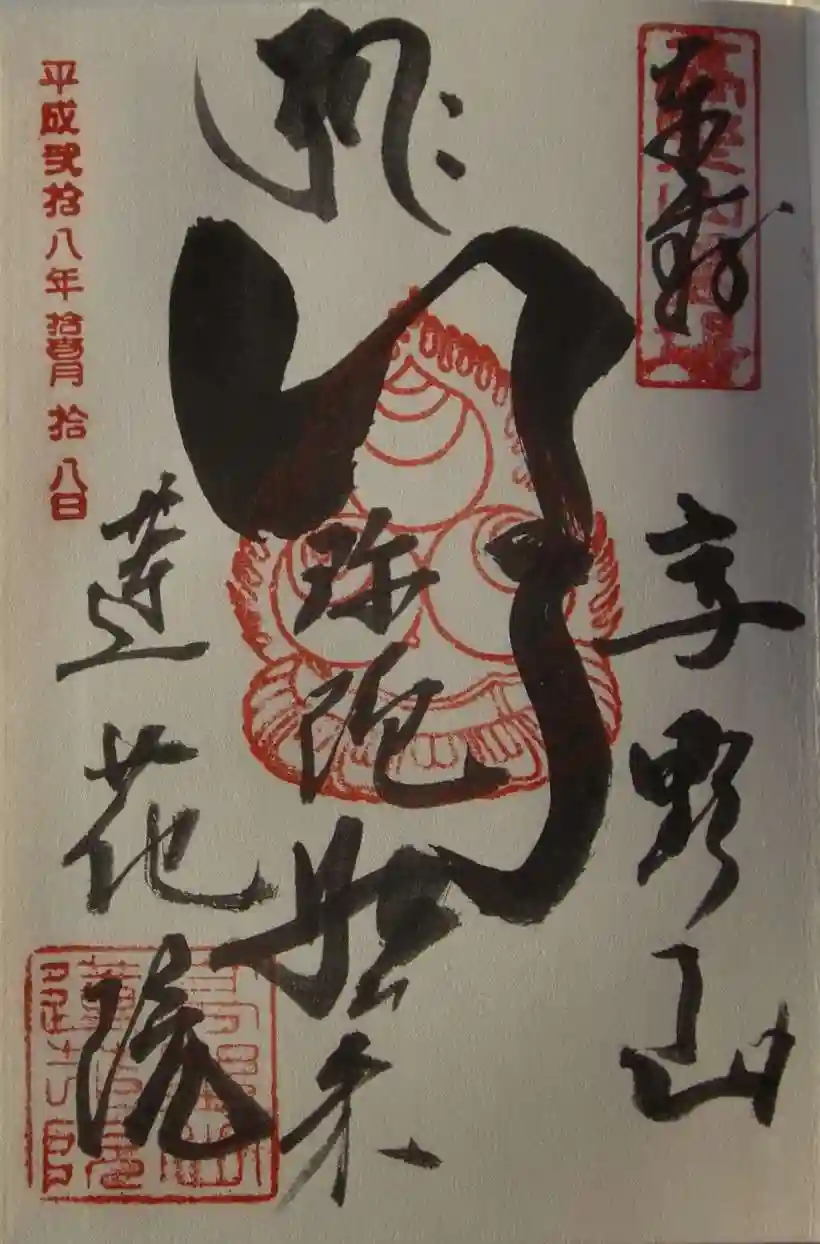 奉拝
高野山
弥陀如来
蓮花院
平成弐拾八年拾壹月拾八日